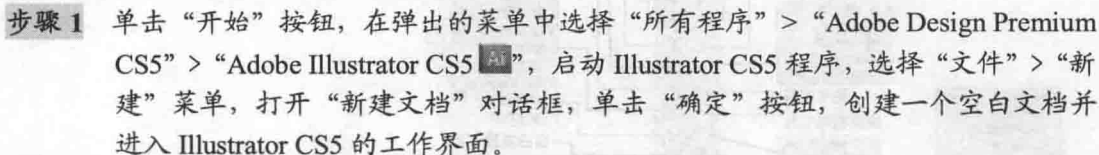 步骤 1 单击“开始”按钮，在弹出的菜单中选择“所有程序”>“Adobe Design Premium
CS5”>“Adobe Illustrator CS5 Ai”，启动 Illustrator CS5 程序，选择“文件”>“新
建”菜单，打开“新建文档”对话框，单击“确定”按钮，创建一个空白文档并
进入 Illustrator CS5 的工作界面。